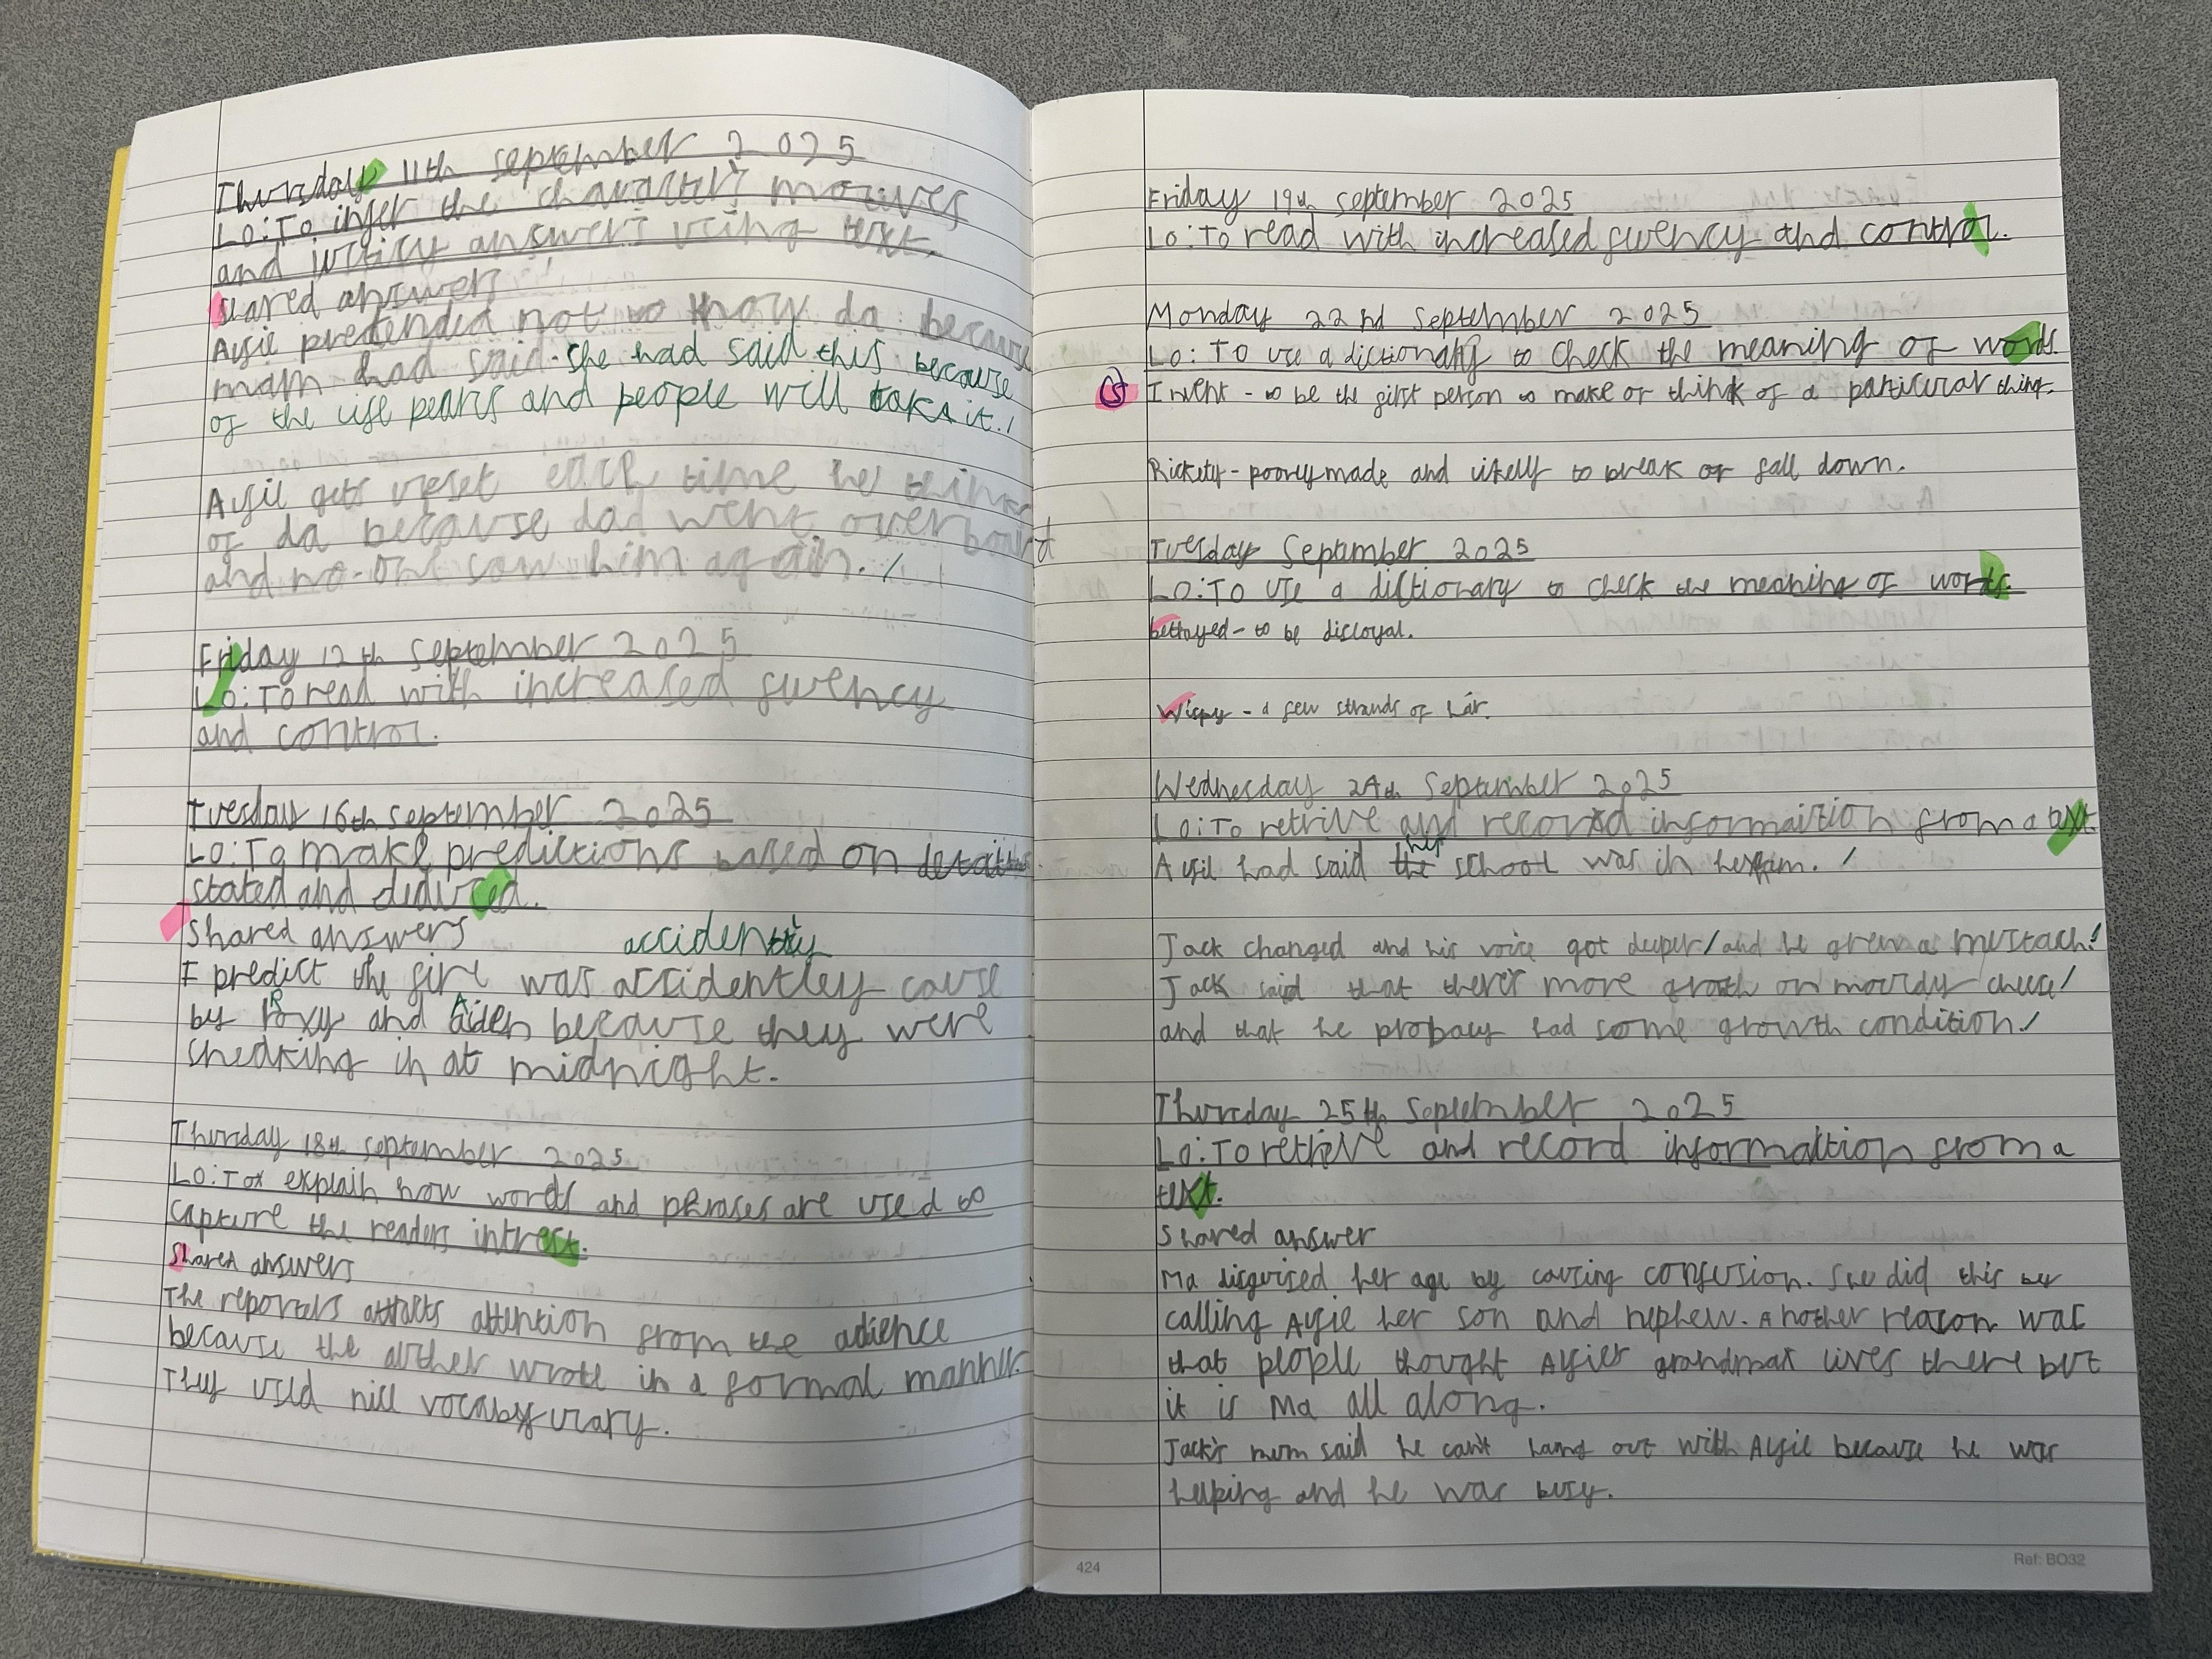 Thursday 11th September 2025
Lo: To infer the character's motives
and justify answers using text.
Shared answers
Alfie pretended not to know da because
mam had said. She had said this because
of the life pearls and people will take it. /
Alfie gets upset each time he thinks
of da because dad went overboard
and no-one saw him again. /
Friday 12th September 2025
Lo: To read with increased fluency
and control.
Tuesday 16th September 2025
LO: To make predictions based on details
stated and deduced.
Shared answers
I predict the fire was accidentley cause
by Roxy and Aiden because they were
sneaking in at midnight.
Thursday 18th September 2025
LO: To explain how words and phrases are used to
capture the readers intrest.
Shared answers
The reporters attracts attention from the adience
because the auther wrote in a formal manner.
They used
Friday 19th September 2025
Lo: To read with increased fluency and control.
Monday 22nd September 2025
Lo: To use a dictionary to check the meaning of words.
S Invent - to be the first person to make or think of a particular thing.
Rickety - poorly made and likely to break or fall down.
Tuesday September 2025
LO: TO use a dictionary to check the meaning of words.
betrayed - to be disloyal.
Wispy - a few strands of hair.
Wednesday 24th September 2025
Lo: To retrive and record informaition from a text.
Alfie had said the his school was in hexham. /
Jack changed and his voice got deeper / and he grew a mustach! /
Jack said that there's more groth on mouldy cheese /
and that he probaly had some growth condition. /
Thursday 25th September 2025
Lo: To retrive and record information from a
text.
Shared answer
Ma disguised her age by causing confusion. She did this by
calling Alfie her son and nephew. Another reason was
that people thought Alfies grandmar lives there but
it is Ma all along.
Jack's mum said he can't hang out with Alfie because he was
helping and he was busy.
424
Ref: BO32